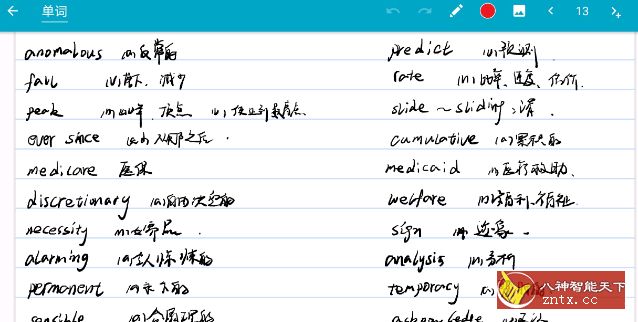 单词 13
anomalous (a)反常的 predict (v)预测
fall (v)落下、减少 rate (n)比率、速度、估价
peak (n)山峰、顶点、 (v) slide ~ sliding 滑
ever since 从那之后 cumulative (a)累积的
medicare 医保 medicaid (n)医疗救助
discretionary (a)自由决定的 welfare (n)福利、福祉
necessity (n)必需品 sign (n)迹象
alarming (a)令人惊慌的 analysis (n)分析
permanent (a)永久的 temporary (a)
sensible (a)合情理的 acknowledge
八神智能天下
zntx.cc